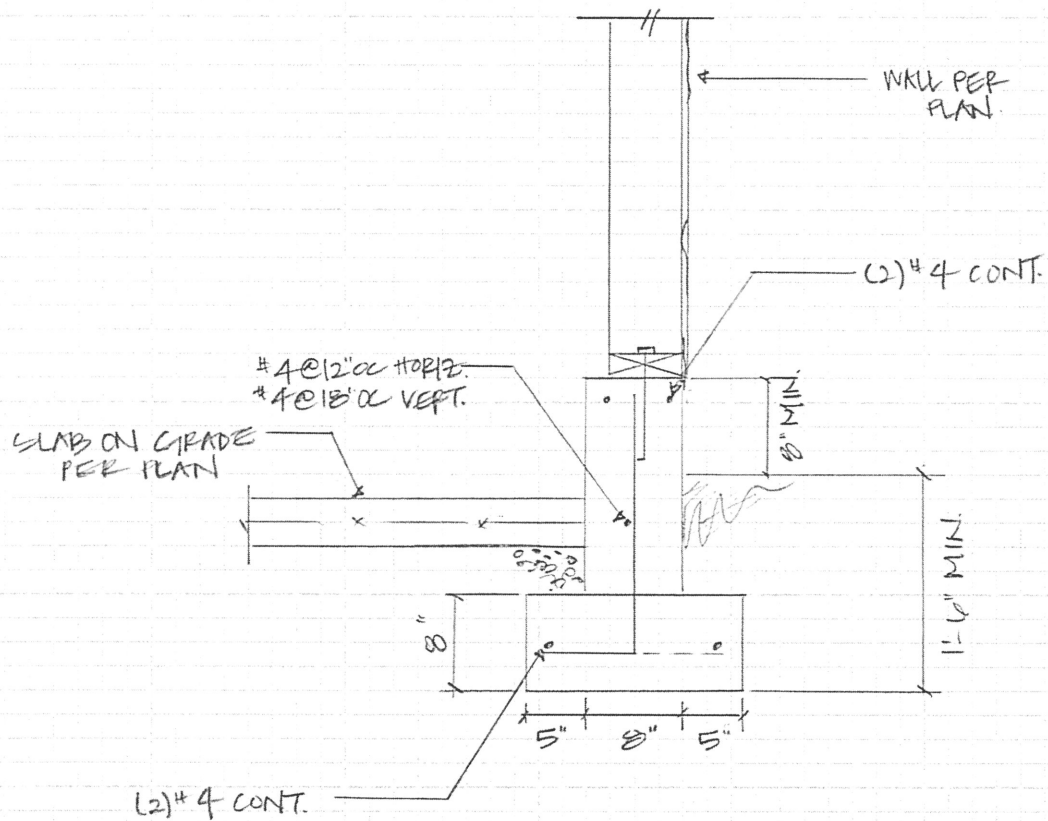 WALL PER
PLAN
(2)#4 CONT.
#4@12"OC HORIZ.
#4@18"OC VERT.
SLAB ON GRADE
PER PLAN
8" MIN.
1'-6" MIN.
8"
5"
8"
5"
(2)#4 CONT.